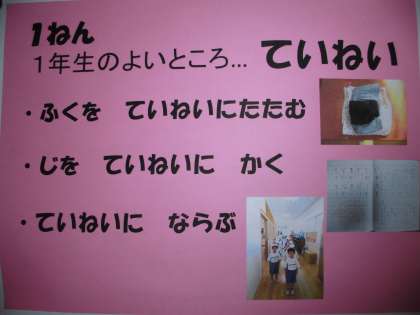 1ねん
1年生のよいところ... ていねい
・ふくを ていねいにたたむ
・じを ていねいに かく
・ていねいに ならぶ